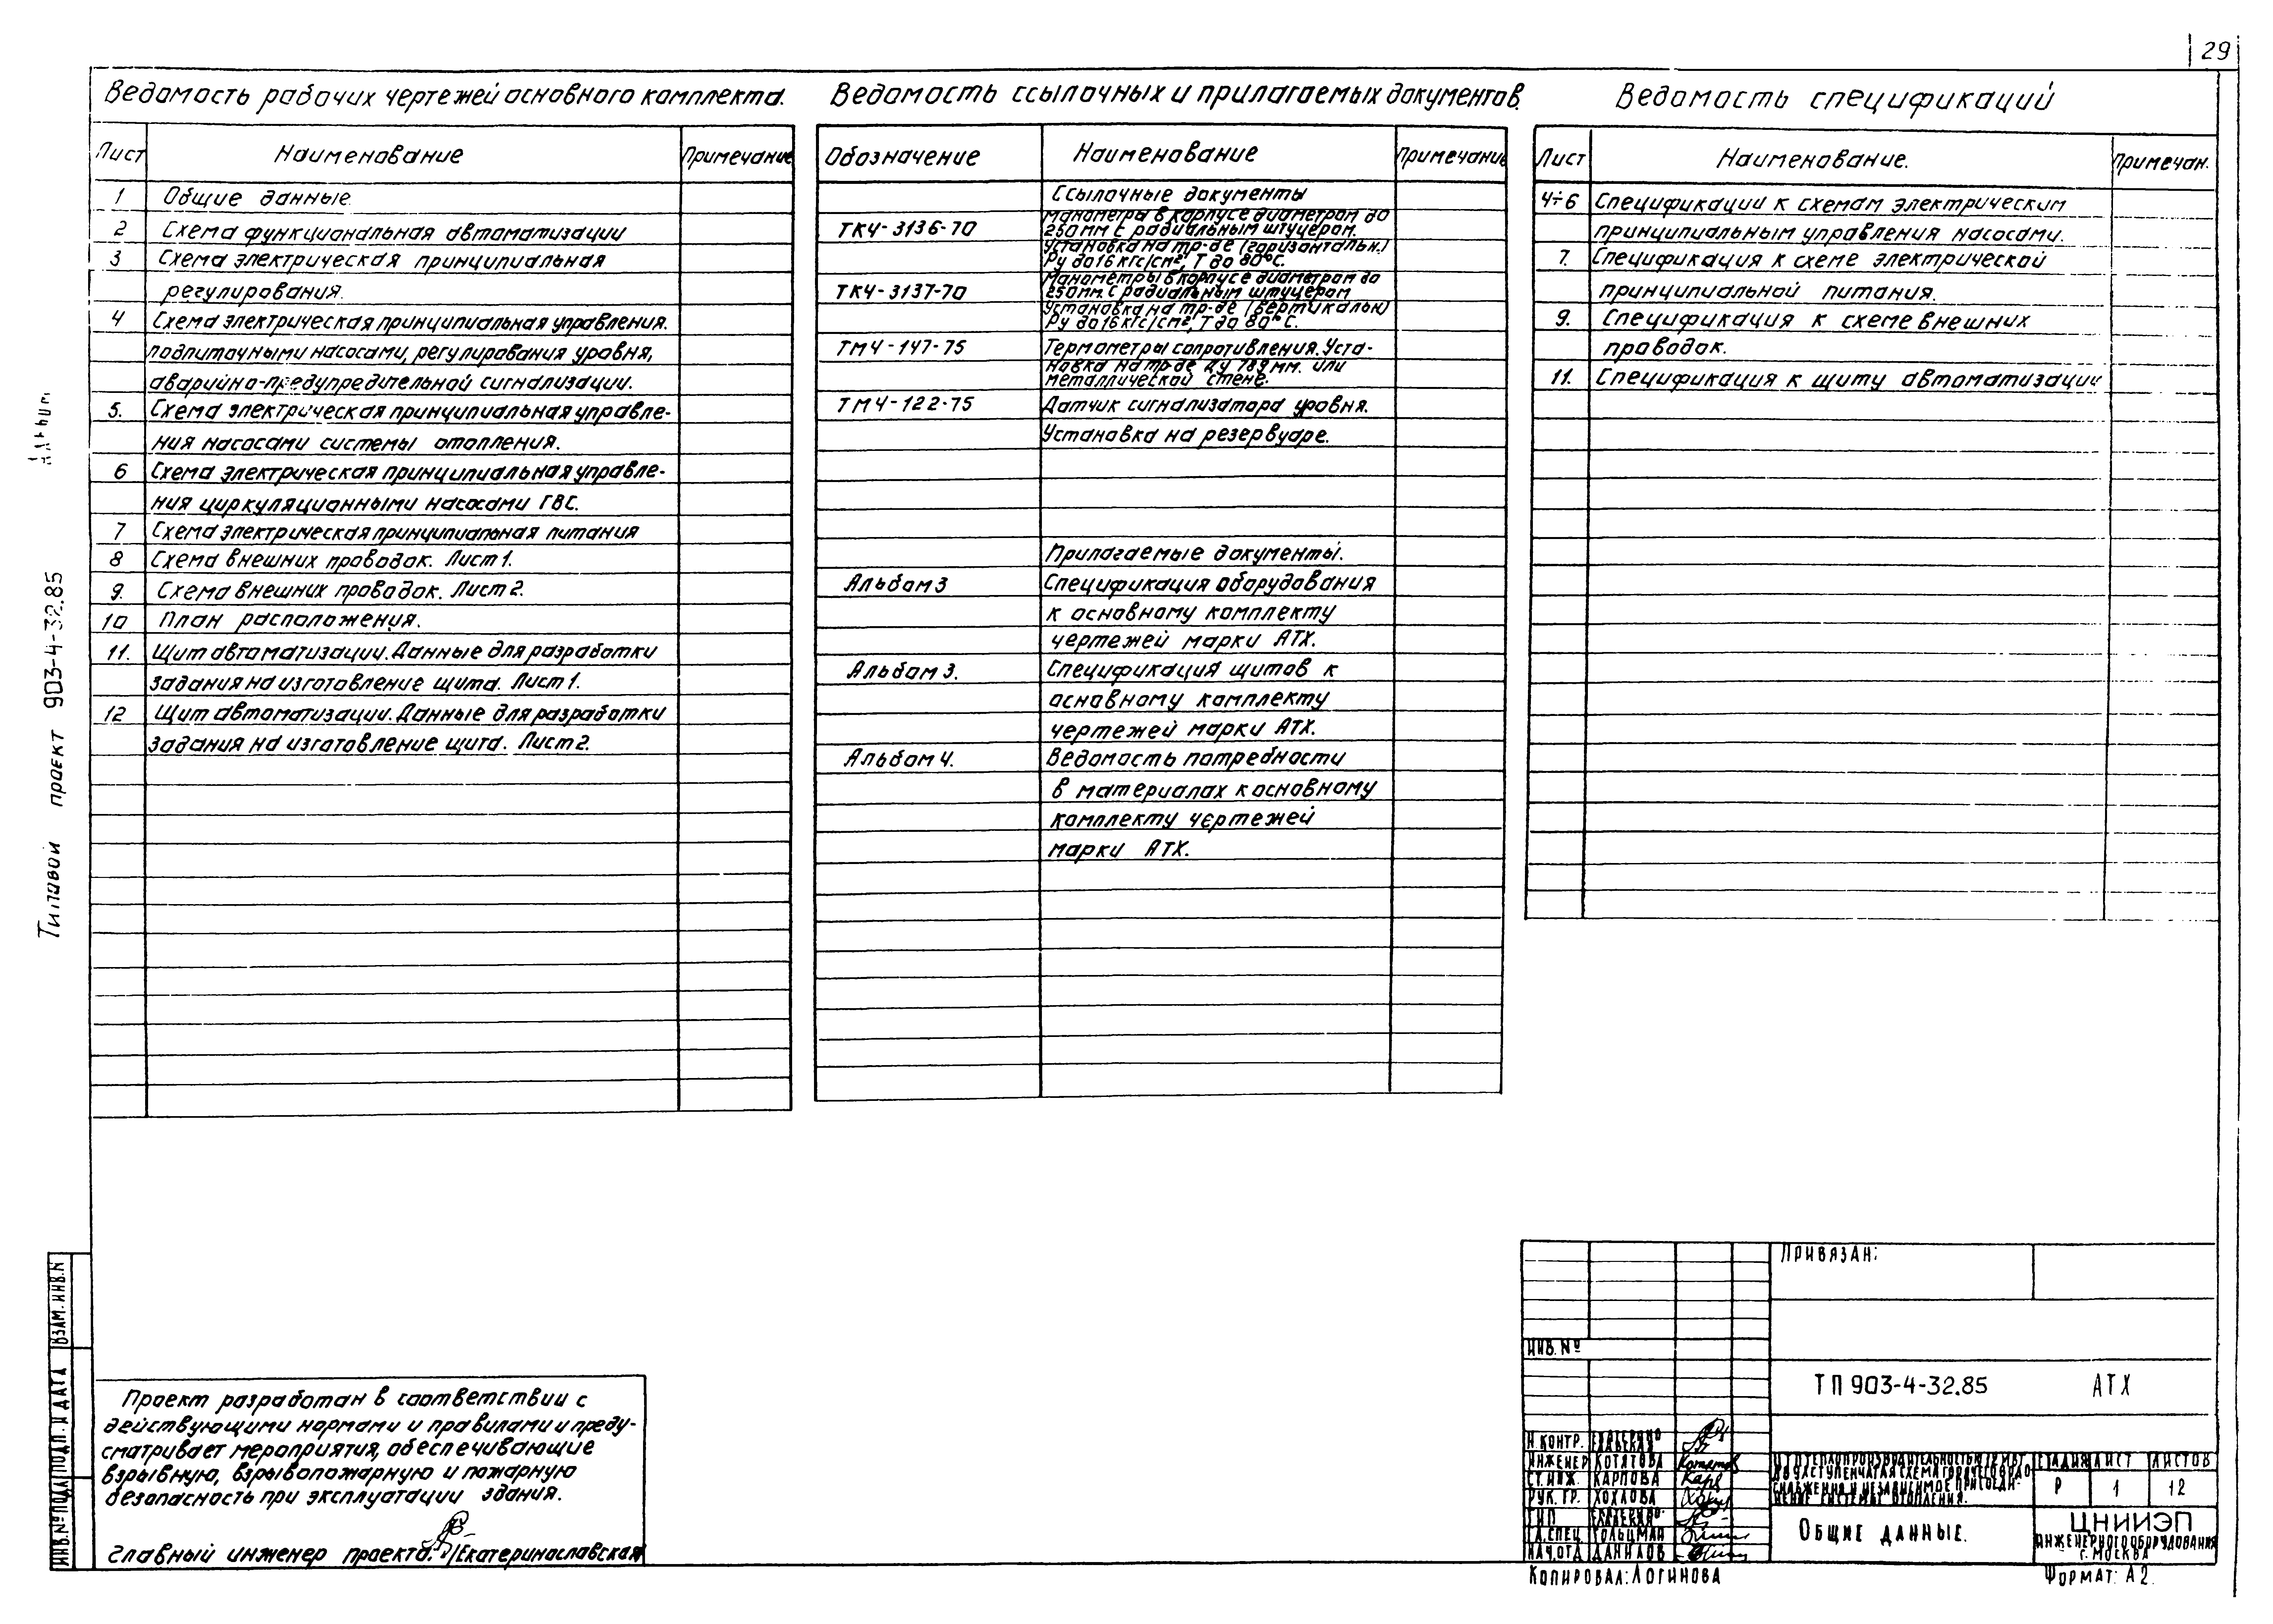 29
Ведомость рабочих чертежей основного комплекта.
Лист Наименование Примечание
1 Общие данные
2 Схема функциональная автоматизации
3 Схема электрическая принципиальная
регулирования.
4 Схема электрическая принципиальная управления.
подпиточными насосами, регулирования уровня,
аварийно-предупредительной сигнализации.
5. Схема электрическая принципиальная управле-
ния насосами системы отопления.
6 Схема электрическая принципиальная управле-
ния циркуляционными насосами ГВС.
7 Схема электрическая принципиальная питания
8 Схема внешних проводок. Лист 1.
9. Схема внешних проводок. Лист 2.
10 План расположения.
11. Щит автоматизации. Данные для разработки
задания на изготовление щита. Лист 1.
12 Щит автоматизации. Данные для разработки
задания на изготовление щита. Лист 2.
Ведомость ссылочных и прилагаемых документов.
Обозначение Наименование Примечание
Ссылочные документы
Манометры в корпусе диаметром до
ТК4-3136-70 250мм с радиальным штуцером.
Установка на тр-де (горизонтальн.)
Ру до 16 кгс/см², Т до 80°С.
Манометры в корпусе диаметром до
ТК4-3137-70 250мм. с радиальным штуцером
Установка на тр-де (вертикальн)
Ру до 16 кгс/см², Т до 80°С.
ТМ4-147-75 Термометры сопротивления. Уста-
новка на тр-де Ду 789 мм. или
металлической стене.
ТМ4-122-75 Датчик сигнализатора уровня.
Установка на резервуаре.
Прилагаемые документы.
Альбом 3 Спецификация оборудования
к основному комплекту
чертежей марки АТХ.
Альбом 3. Спецификация щитов к
основному комплекту
чертежей марки АТХ.
Альбом 4. Ведомость потребности
в материалах к основному
комплекту чертежей
марки АТХ.
Ведомость спецификаций
Лист Наименование. Примечан.
4÷6 Спецификации к схемам электрическим
принципиальным управления насосами.
7. Спецификация к схеме электрической
принципиальной питания.
9. Спецификация к схеме внешних
проводок.
11. Спецификация к щиту автоматизации
Типовой проект 903-4-32.85
ВЗАМ. ИНВ. N
ПОДП. И ДАТА
ИНВ. № ПОДЛ
Проект разработан в соответствии с
действующими нормами и правилами и преду-
сматривает мероприятия, обеспечивающие
взрывную, взрывопожарную и пожарную
безопасность при эксплуатации здания.
Главный инженер проекта: /Екатеринославская
ПРИВЯЗАН:
ИНВ. №
ТП 903-4-32.85 АТХ
Н. КОНТР. ЕКАТЕРИНО
СЛАВСКАЯ
ИНЖЕНЕР КОТЯТОВА
СТ. ИНЖ. КАРПОВА
РУК. ГР. ХОХЛОВА
ГИП
ГЛ. СПЕЦ ГОЛЬЦМАН
НАЧ. ОТД ДАНИЛОВ
ЦТП ТЕПЛОПРОИЗВОДИТЕЛЬНОСТЬЮ МВТ
ДВУХСТУПЕНЧАТАЯ СХЕМА ГОРЯЧЕГО ВОДО-
СНАБЖЕНИЯ И НЕЗАВИСИМОЕ ПРИСОЕДИ-
НЕНИЕ СИСТЕМЫ ОТОПЛЕНИЯ.
СТАДИЯ ЛИСТ ЛИСТОВ
Р 1 12
ОБЩИЕ ДАННЫЕ.
ЦНИИЭП
ИНЖЕНЕРНОГО ОБОРУДОВАНИЯ
Г. МОСКВА
КОПИРОВАЛ: ЛОГИНОВА
ФОРМАТ: А2.